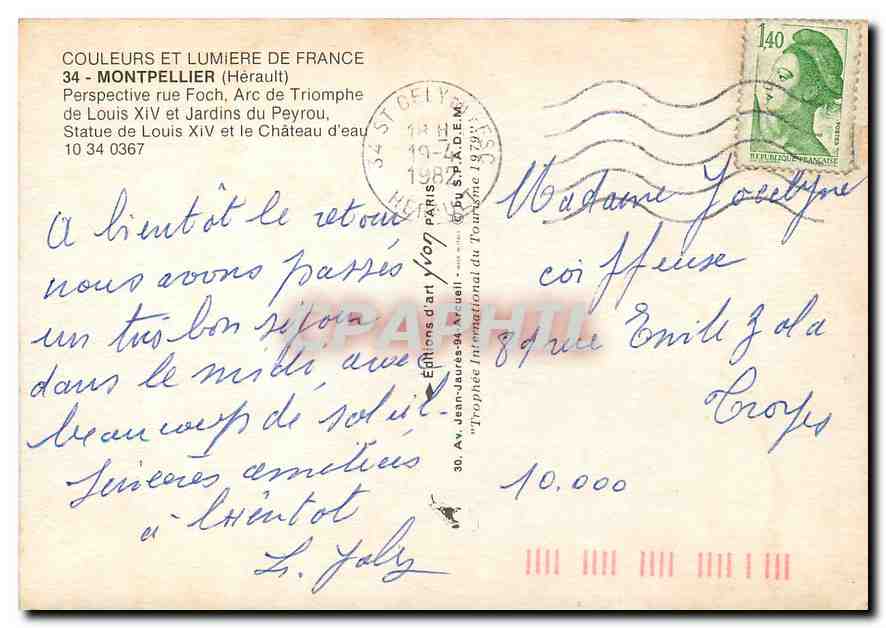 COULEURS ET LUMIERE DE FRANCE
34 - MONTPELLIER (Hérault)
Perspective rue Foch, Arc de Triomphe
de Louis XIV et Jardins du Peyrou,
Statue de Louis XIV et le Château d'eau
10 34 0367
A bientôt le retour
nous avons passés
un très bon séjour
dans le midi avec
beaucoup de soleil.
Sincères amitiés
à bientot
Editions d'art Yvon PARIS
30, Av. Jean-Jaurès-94-Arcueil
© ou S.P.A.D.E.M.
"Trophée International du Tourisme 1979"
34 ST GELY DU FESC
18 H
19-4
1982
HERAULT
1,40
POSTES
REPUBLIQUE FRANÇAISE
Madame Jocelyne
coiffeuse
89 rue Emile Zola
Troyes
10.000
CPAPHIL